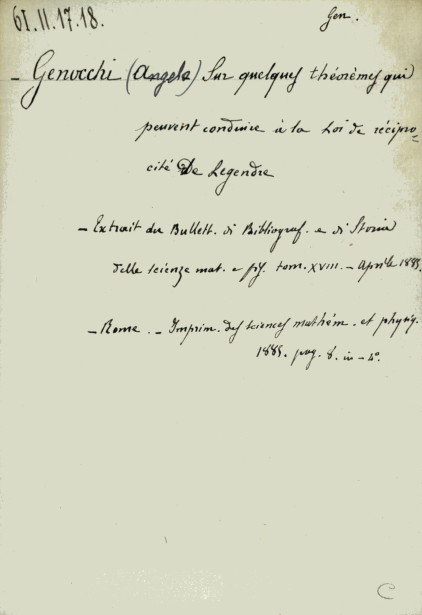 61.II.17.18.
Gen.
- Genocchi (Angelo) Sur quelques théorèmes qui
peuvent conduire à la Loi de récipro-
cité De Legendre
- Extrait du Bullett. di Bibliograf. e di Storia
delle scienze mat. e fis. tom. XVIII. - Aprile 1885.
- Rome. - Imprim. des sciences mathém. et physiq.
1885. pag. 8. in - 4°.
C